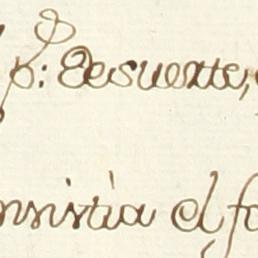 p: Desuerte,
nsistia el fo